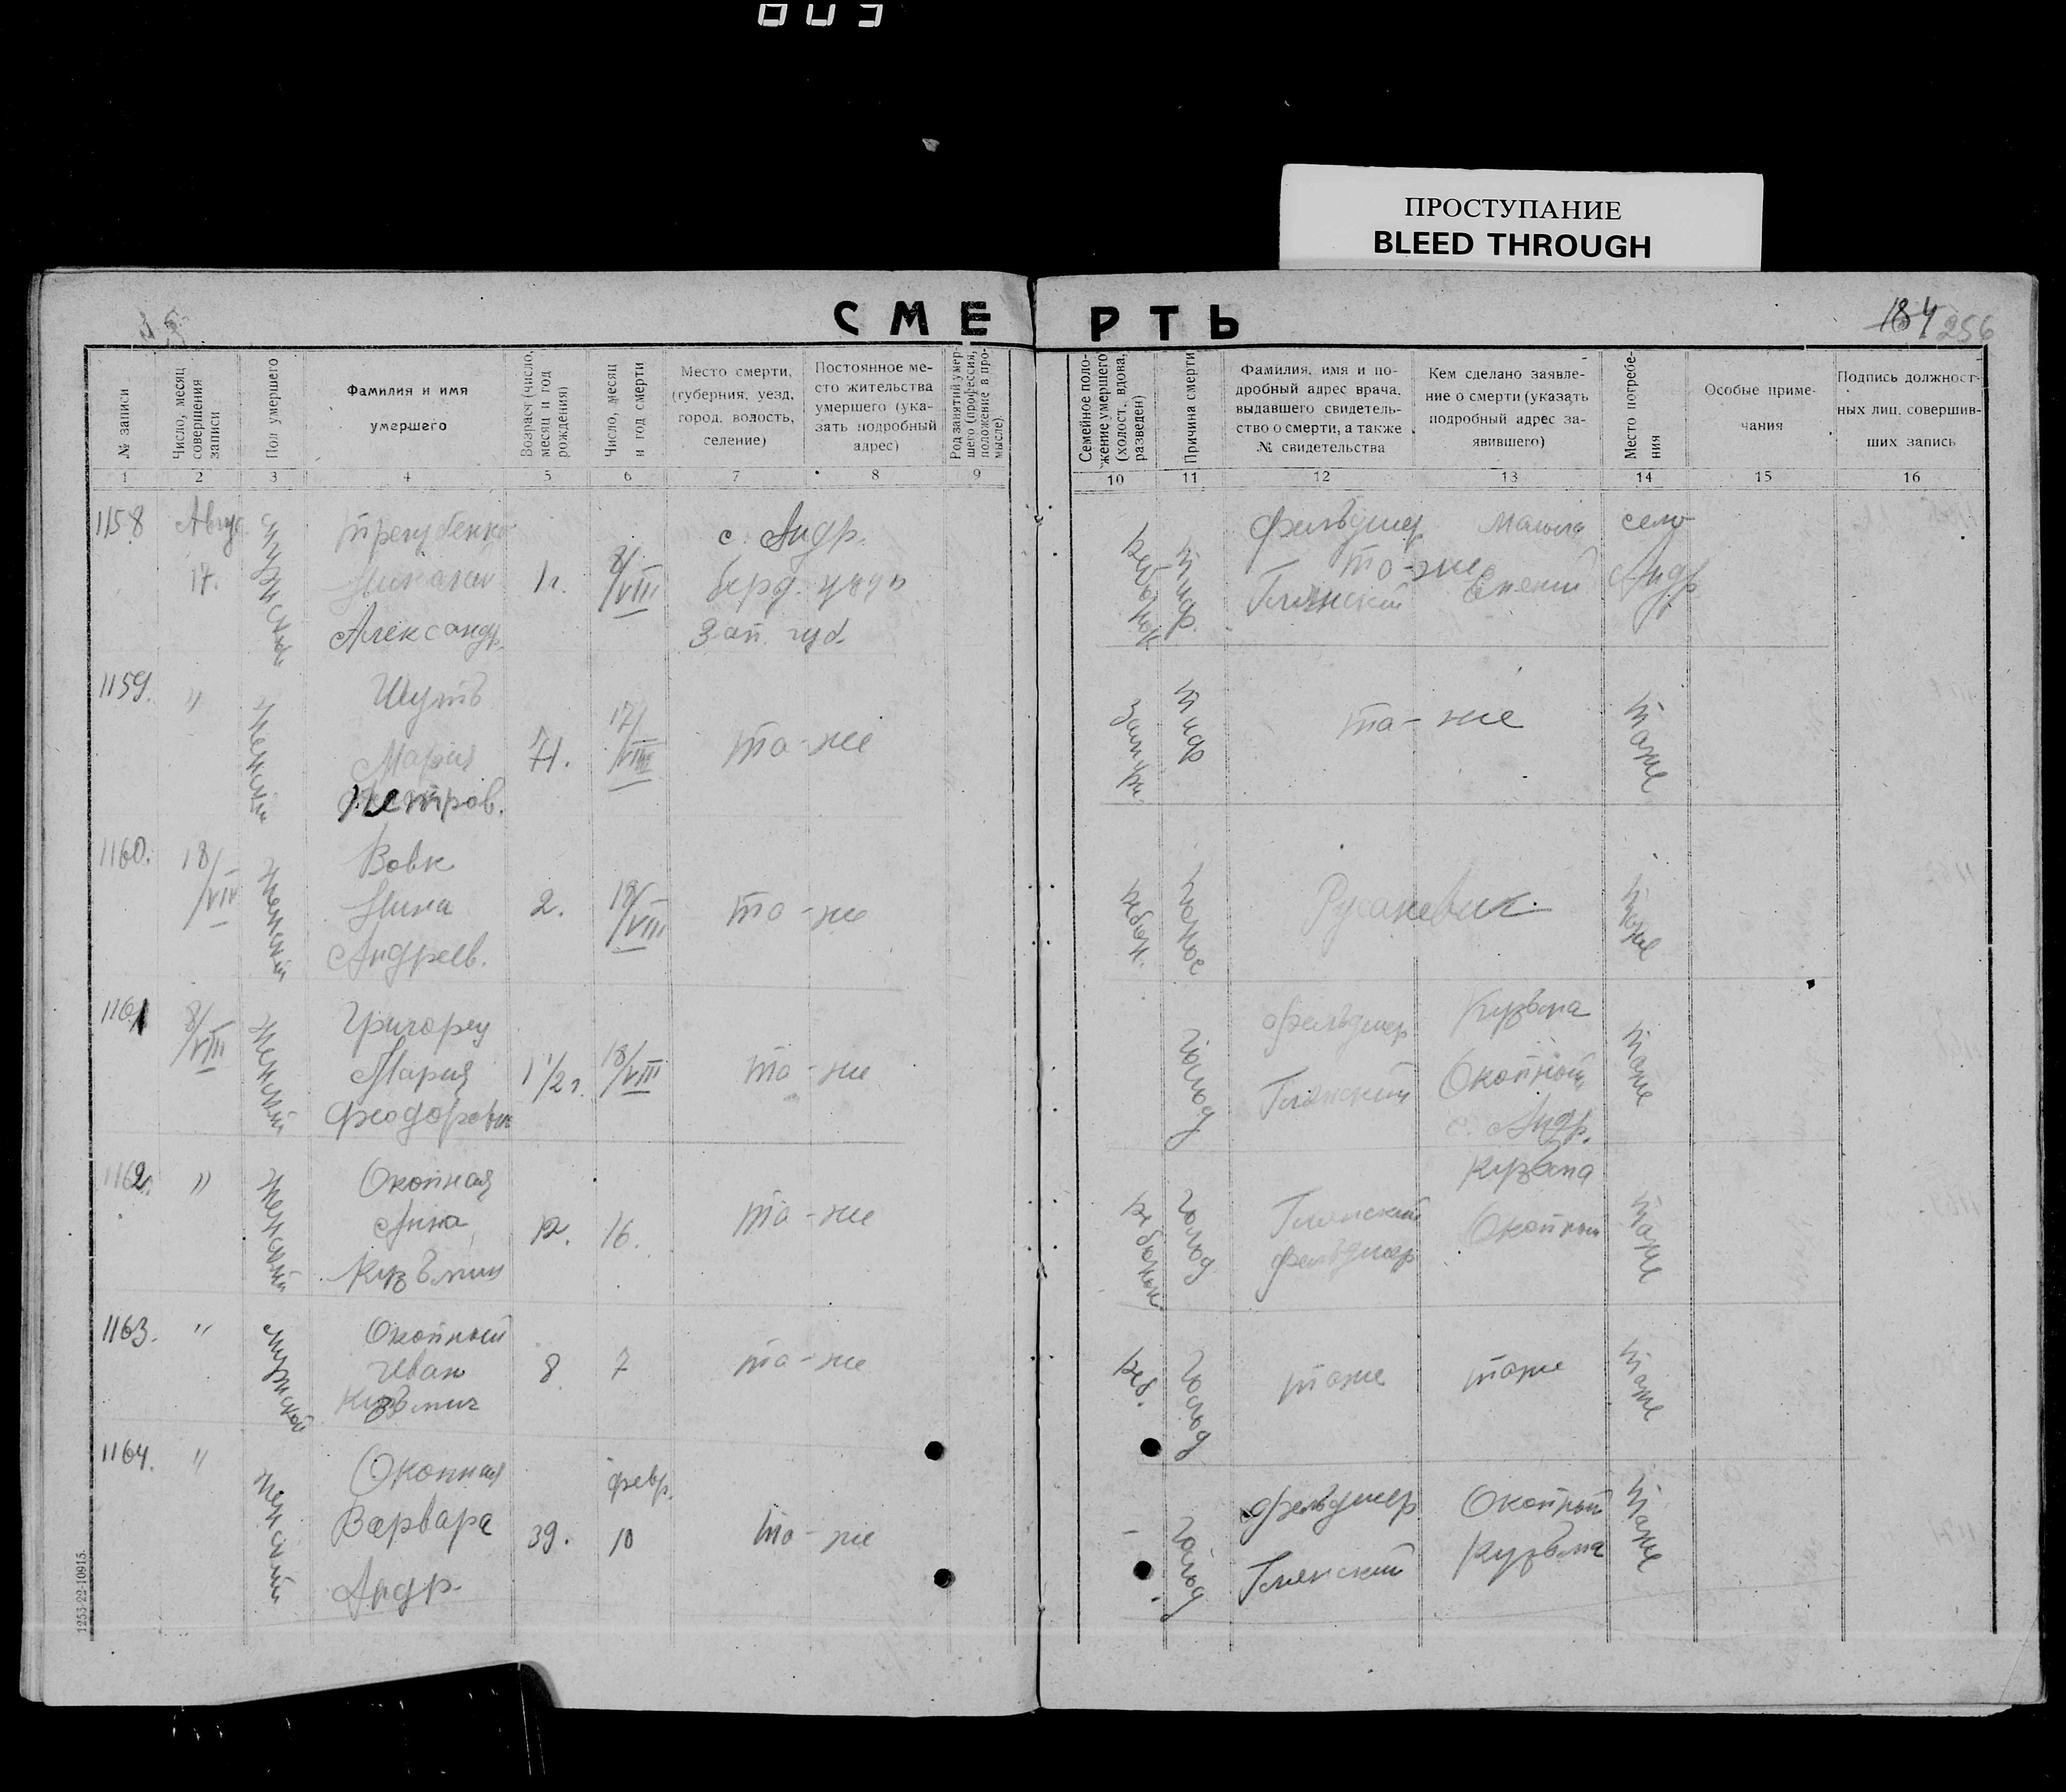 809
ПРОСТУПАНИЕ
BLEED THROUGH
СМЕРТЬ
184 256
№ записи
Число, месяц совершения записи
Пол умершего
Фамилия и имя умершего
Возраст (число, месяц и год рождения)
Число, месяц и год смерти
Место смерти, (губерния, уезд, город, волость, селение)
Постоянное место жительства умершего (указать подробный адрес)
Род занятий умершего (профессия, положение в промысле).
Семейное положение умершего (холост., вдова, разведен)
Причина смерти
Фамилия, имя и подробный адрес врача, выдавшего свидетельство о смерти, а также № свидетельства
Кем сделано заявление о смерти (указать подробный адрес заявившего)
Место погребения
Особые примечания
Подпись должностных лиц, совершивших запись
1 2 3 4 5 6 7 8 9 10 11 12 13 14 15 16
1158 Авгус. 17. мужской
Трегубенко
Александр.
1 г. 8/VIII
с. Андр.
берд. уезд
Зап. губ.
тиф.
фельдшер
то-же
Глянский
село
Андр
1159. " женский
Шуть
Мария
Петров.
71. 17/VIII то-же
замуж. тиф то-же тоже
1160. 18/VIII женский
Вовк
Нина
Андреев.
2. 18/VIII то-же
понос Русаневич тоже
1161 8/VIII женский
Григорец
Мария
Феодоровн
1 1/2 г. 18/VIII то-же
голод
фельдшер
Глянский
Кузьма
Окопный
с. Андр.
тоже
1162. " женский
Окопная
Анна
Кузьмин
12. 16. то-же
голод
Глянский
фельдшер
Кузьма
Окопный
тоже
1163. " мужской
Окопный
Иван
Кузьмич
8 7 то-же
голод тоже тоже тоже
1164. " женский
Окопная
Варвара
Андр.
39. февр. 10 то-же
- голод
фельдшер
Глянский
Окопный
Кузьма
тоже
1253-22-10915.